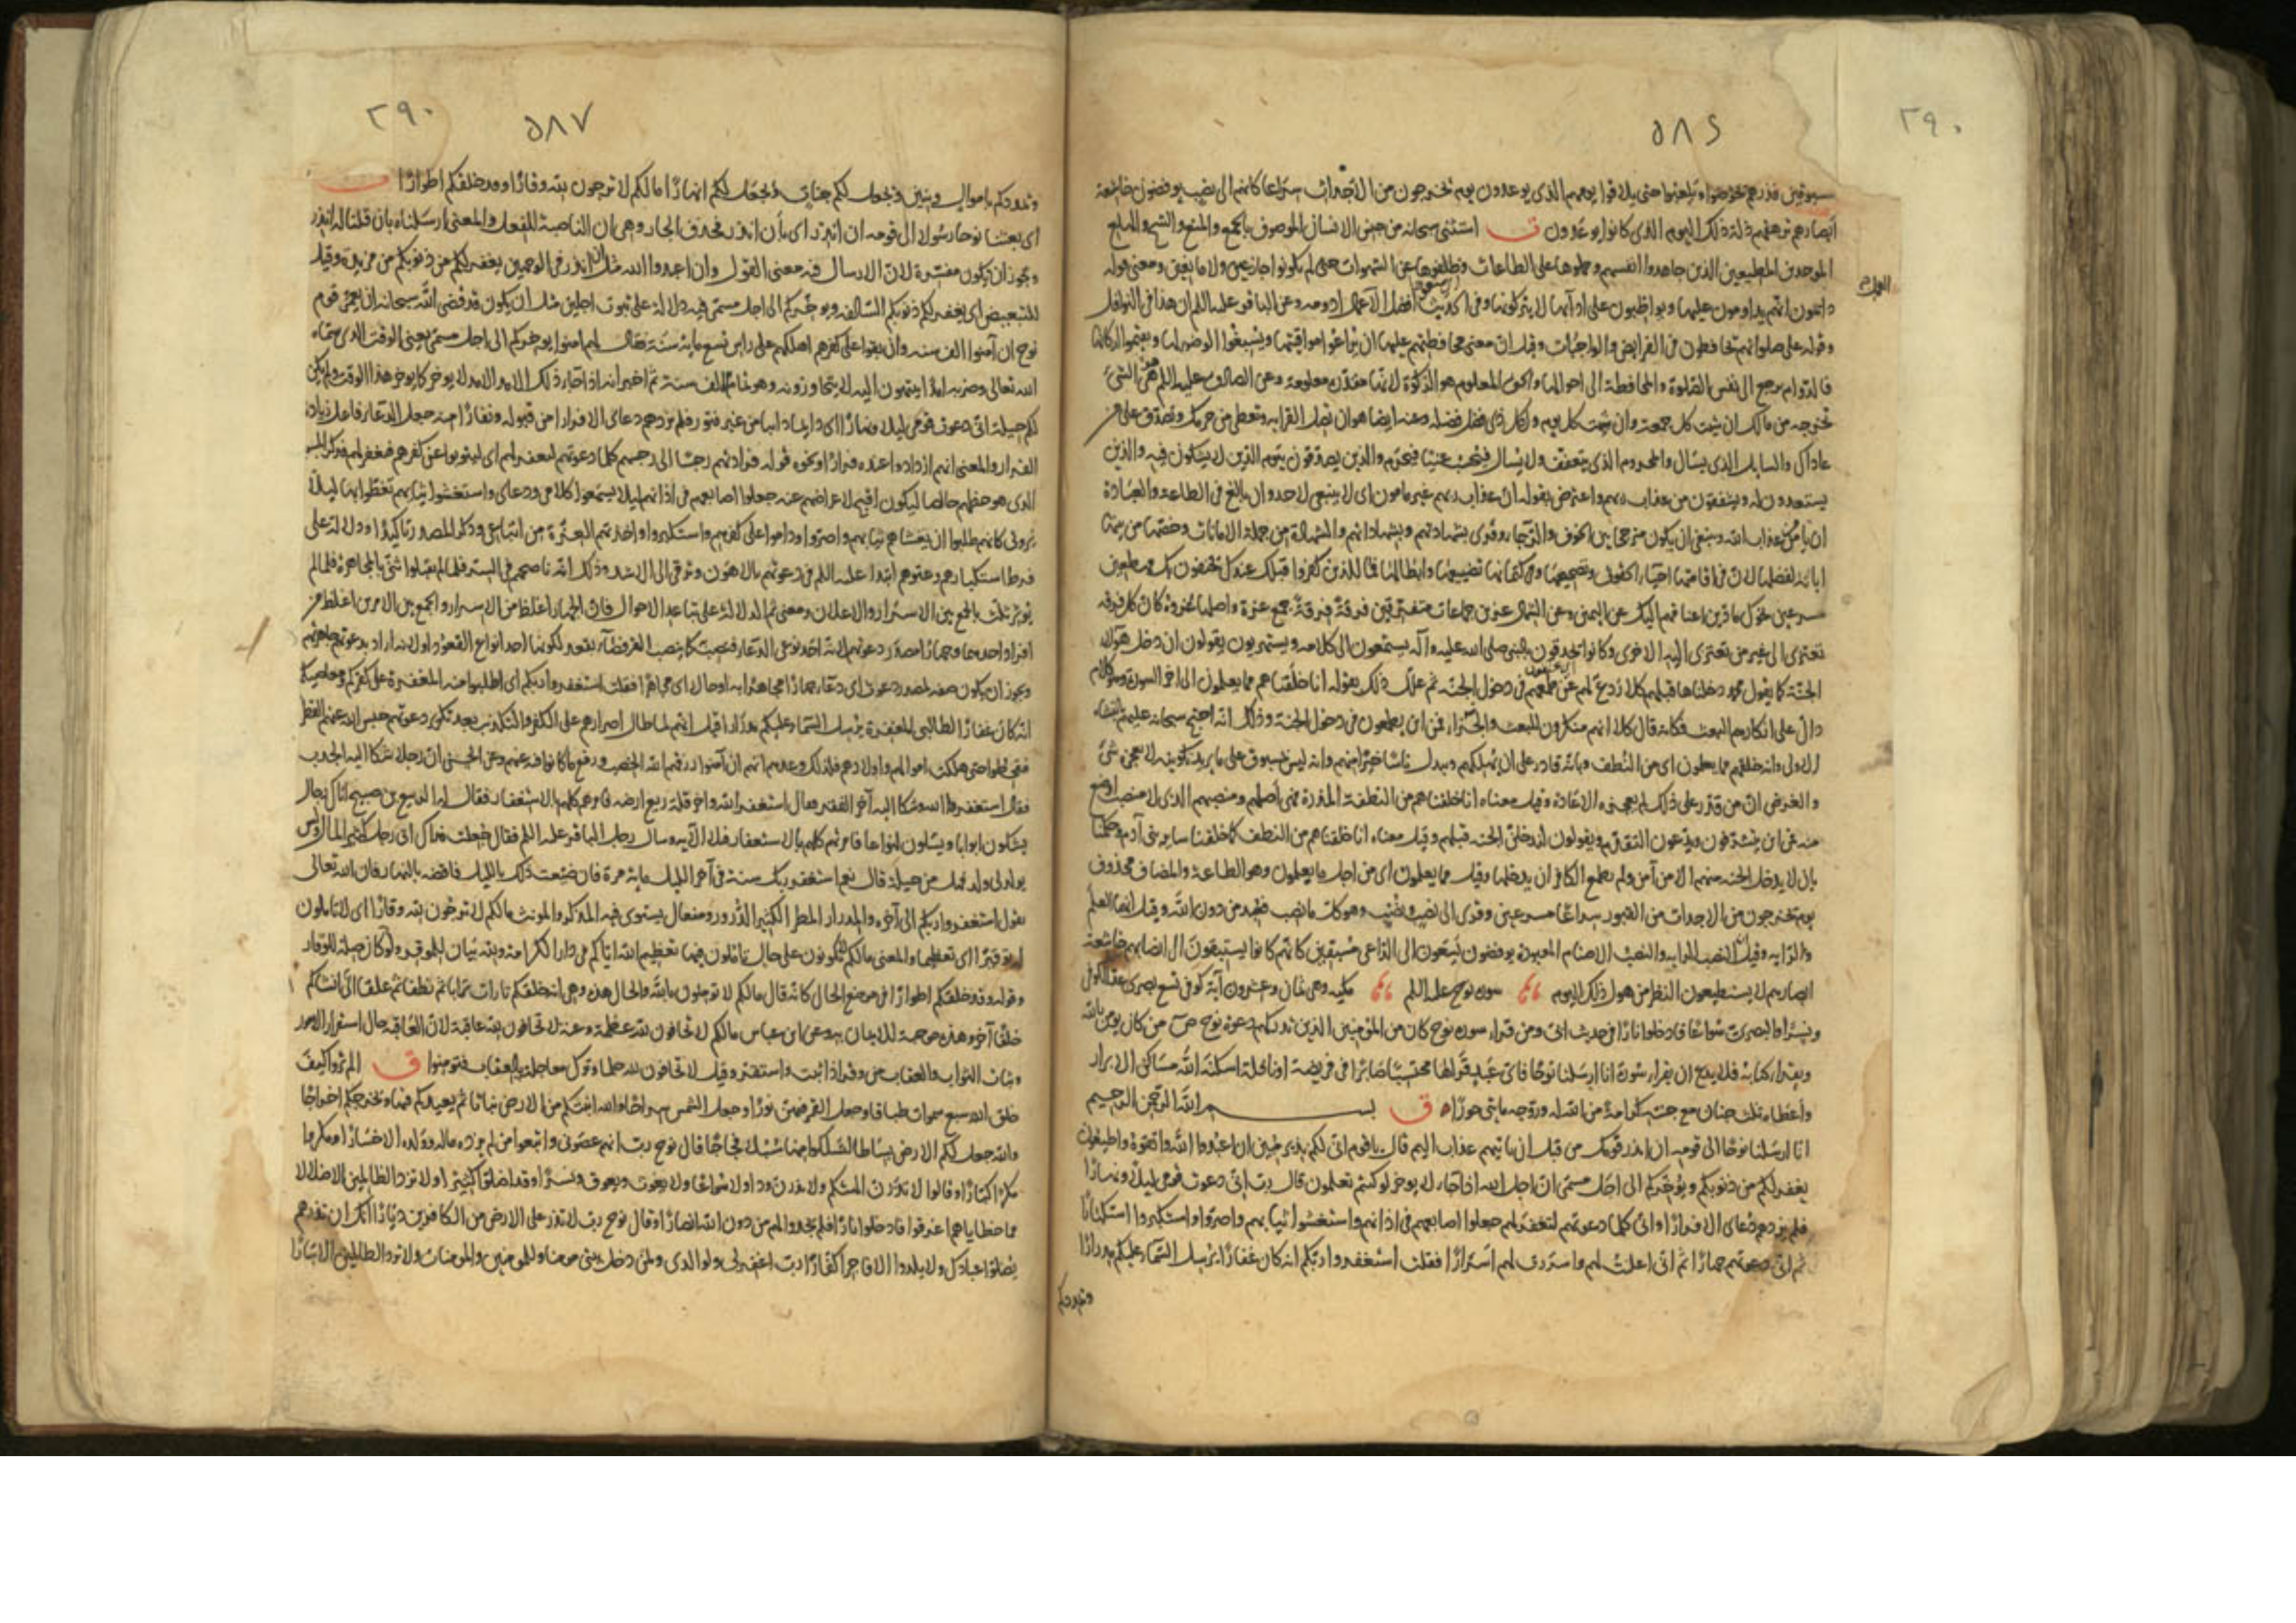 ٥٨٦
٢٩٠
بمسبوقين فذرهم يخوضوا ويلعبوا حتى يلاقوا يومهم الذى يوعدون يوم يخرجون من الاجداث سراعا كانهم الى نصب يوفضون خاشعة
ابصارهم ترهقهم ذلة ذلك اليوم الذى كانوا يوعدون ق استثنى سبحانه من جنس الانسان الموصوف بالجمع والمنع والشح والهلع
الموحدين المطيعين الذين جاهدوا انفسهم وحملوها على الطاعات وظلفوها عن الشهوات حتى لم يكونوا جازعين ولا مانعين ومعنى قوله
دائمون انهم يداومون عليها ويواظبون على ادائها لا يتركونها وفى الحديث افضل الاعمال ادومه وعن الباقر عليه السلم ان هذا فى النوافل
وقوله على صلواتهم يحافظون فى الفرايض والواجبات وقيل ان معنى محافظتهم عليها ان يراعوا مواقيتها ويسبغوا الوضوء لها ويقيموا اركانها
فالدوام يرجع الى نفس الصلوة والمحافظة الى احوالها والحق المعلوم هو الزكوة لانها مقدرة معلومة وعن الصادق عليه السلم هو الشىء
تخرجه من مالك ان شئت كل جمعة وان شئت كل يوم ولكل ذى فضل فضله وعنه ايضا هو ان تصل القرابة وتعطى من حرمك وتصدق على من
عاداك والسايل الذى يسأل والمحروم الذى يتعفف ولا يسأل فيحسب غنيا فيحرم والذين يصدقون بيوم الدين لا يشكون فيه والذين
يستعدون له ويشفقون من عذاب ربهم واعترض بقوله ان عذاب ربهم غير مامون اى لا ينبغى لاحد وان بالغ فى الطاعة والعبادة
ان يامن عذاب الله وينبغى ان يكون مترجحا بين الخوف والرجاء وقرى بشهادتهم وبشهاداتهم والشهادة من جملة الامانات وخصها من بينها
ابانة لفضلها لان فى اقامتها احياء الحقوق وتصحيحها وفى كتمانها تضييعها وابطالها فمال الذين كفروا قبلك عندك يحتفون بك مهطعين
مسرعين نحوك مادين اعناقهم اليك عن اليمين وعن الشمال عزين جماعات متفرقين فرقة فرقة جمع عزة واصلها عزوة كان كل فرقة
تعتزى الى غير من تعتزى اليه الاخرى وكانوا يحدقون بالنبى صلى الله عليه وآله يستمعون الى كلامه ويستهزءون يقولون ان دخل هؤلاء
الجنة كما يقول محمد دخلناها قبلهم كلا ردع لهم عن طمعهم فى دخول الجنة ثم علل ذلك بقوله انا خلقناهم مما يعلمون الى اخر السورة وهو كلام
دال على انكارهم البعث فكانه قال كلا انهم منكرون للبعث والجزاء فمن اين يطمعون فى دخول الجنة وذلك انه احتج سبحانه عليهم بالنشاة
الاولى وانه خلقهم مما يعلمون اى من النطف وبانه قادر على ان يهلكهم ويبدل ناسا خيرا منهم وانه ليس بمسبوق على ما يريد تكوينه لا يعجزه شىء
والغرض ان من قدر على ذلك لم يعجزه الاعادة وقيل معناه انا خلقناهم من النطفة المذرة فهى اصلهم ومنصبهم الذى لا منصب اوضع
منه فمن اين يتشرفون ويدعون التقدم ويقولون لندخلن الجنة قبلهم وقيل معناه انا خلقناهم من النطف كما خلقنا ساير بنى آدم وحكمنا
بان لا يدخل الجنة منهم الا من آمن ولم يطمع الكافر ان يدخلها وقيل مما يعلمون اى من اجل ما يعلمون وهو الطاعة والمضاف محذوف
يوم يخرجون من الاجداث من القبور سراعا مسرعين وقرى الى نصب ونصب وهو كل ما نصب فعبد من دون الله وقيل ايضا العلم
والراية وقيل النصب الراية والنصب الاصنام المعبودة يوفضون يسعون الى الداعى مستبقين كانهم كانوا يستبقون الى انصابهم خاشعة
ابصارهم لا يستطيعون النظر من هول ذلك اليوم سورة نوح عليه السلم مكية وهى ثمان وعشرون آية كوفى تسع بصرى عد الكوفى
ونسرا والبصرى سواعا فادخلوا نارا فى حديث ابى ومن قرا سورة نوح كان من المؤمنين الذين تدركهم دعوة نوح ص من كان يؤمن بالله
ويقرا كتابه فلا يدع ان يقرا سورة انا ارسلنا نوحا فاى عبد قراها محتسبا صابرا فى فريضة او نافلة اسكنه الله مساكن الابرار
واعطاه ثلث جنان مع جنته كرامة من الله له وزوجه مايتى حوراء ق بسم الله الرحمن الرحيم
انا ارسلنا نوحا الى قومه ان انذر قومك من قبل ان ياتيهم عذاب اليم قال يا قوم انى لكم نذير مبين ان اعبدوا الله واتقوه واطيعون
يغفر لكم من ذنوبكم ويؤخركم الى اجل مسمى ان اجل الله اذا جاء لا يوخر لو كنتم تعلمون قال رب انى دعوت قومى ليلا ونهارا
فلم يزدهم دعائى الا فرارا وانى كلما دعوتهم لتغفر لهم جعلوا اصابعهم فى اذانهم واستغشوا ثيابهم واصروا واستكبروا استكبارا
ثم انى دعوتهم جهارا ثم انى اعلنت لهم واسررت لهم اسرارا فقلت استغفروا ربكم انه كان غفارا يرسل السماء عليكم مدرارا
ويمددكم
٥٨٧
٢٩٠
ويمددكم باموال وبنين ويجعل لكم جنات ويجعل لكم انهارا ما لكم لا ترجون لله وقارا وقد خلقكم اطوارا ق
اى بعثنا نوحا رسولا الى قومه ان انذر اى بأن انذر فحذف الجار وهى ان الناصبة للفعل والمعنى ارسلناه بان قلنا له انذر
ويجوز ان يكون مفسرة لان الارسال فيه معنى القول وان اعبدوا الله مثل ان انذر فى الوجهين يغفر لكم من ذنوبكم من مزيدة وقيل
للتبعيض اى يغفر لكم ذنوبكم السالفة ويوخركم الى اجل مسمى فيه دلالة على ثبوت اجلين مثل ان يكون قد قضى الله سبحانه ان يعمر قوم
نوح ان آمنوا الف سنة وان بقوا على كفرهم اهلكهم على راس تسع ماية سنة فقال لهم امنوا يوخركم الى اجل مسمى يعنى الوقت الذى سماه
الله تعالى وضربه امدا ينتهون اليه لا يتجاوزونه وهو تمام الالف سنة ثم اخبر انه اذا جاء ذلك الامد لا يوخر كما يوخر هذا الوقت ولم يكن
لكم حيلة انى دعوت قومى ليلا ونهارا اى دايما دايبا من غير فتور فلم يزدهم دعائى الا فرارا من قبوله ونفارا منه جعل الدعاء فاعل زيادة
الفرار والمعنى انهم ازدادوا عنده فرارا ونحوه قوله فزادتهم رجسا الى رجسهم كلما دعوتهم لتغفر لهم اى ليتوبوا عن كفرهم فتغفر لهم فذكر المسبب
الذى هو حظهم خالصا ليكون اقبح لاعراضهم عنه جعلوا اصابعهم فى اذانهم ليلا يسمعوا كلامى ودعائى واستغشوا ثيابهم تغطوا بها ليلا
يرونى كانهم طلبوا ان يغشاهم ثيابهم واصروا وداموا على كفرهم واستكبروا واخذتهم العزة من اتباعى وذكر المصدر تاكيدا ودلالة على
فرط استكبارهم وعتوهم ابتدا عليه السلم فى دعوتهم بالاهون وترقى الى الاشد وذلك انه ناصحهم فى السر فلما لم يقبلوا ثنى بالمجاهرة فلما لم
يوثر ثلث بالجمع بين الاسرار والاعلان ومعنى ثم الدلالة على تباعد الاحوال فان الجهار اغلظ من الاسرار والجمع بين الامرين اغلظ من
افراد احدهما وجهارا مصدر دعوتهم لانه احد نوعى الدعاء فنصب كما ينصب القرفصاء بقعد لكونها احد انواع القعود او لانه اراد بدعوتهم جاهرتهم
ويجوز ان يكون صفة لمصدر دعوت اى دعاء جهارا مجاهرا به او حالا اى مجاهرا فقلت استغفروا ربكم اى اطلبوا منه المغفرة على كفركم ومعاصيكم
انه كان غفارا لطالبى المغفرة يرسل السماء عليكم مدرارا قيل انهم لما طال اصرارهم على الكفر والتكذيب بعد تكرير دعوتهم حبس الله عنهم القطر
فقحطوا حتى هلكت اموالهم واولادهم فلذلك وعدهم انهم ان آمنوا رزقهم الله الخصب ورفع ما كانوا فيه عنهم وعن الحسن ان رجلا شكا اليه الجدب
فقال استغفر الله وشكا اليه آخر الفقر فقال استغفر الله واخر قلة ريع ارضه فامرهم كلهم بالاستغفار فقال له الربيع بن صبيح اتاك رجال
يشكون ابوابا ويسئلون انواعا فامرتهم كلهم بالاستغفار فتلا الآية وسال رجل الباقر عليه السلم فقال جعلت فداك انى رجل كثير المال وليس
يولد لى ولد فهل من حيلة قال نعم استغفر ربك سنة فى آخر الليل ماية مرة فان ضيعت ذلك بالليل فاقضه بالنهار فان الله تعالى
يقول استغفروا ربكم الى آخره والمدرار المطر الكثير الدرور ومفعال يستوى فيه المذكر والمونث مالكم لا ترجون لله وقارا اى لا تاملون
له توقيرا اى تعظيما والمعنى مالكم لا تكونون على حال تاملون فيها تعظيم الله اياكم فى دار الكرامة ولله بيان للموقر ولو تاخر لكان صلة للوقار
وقوله وقد خلقكم اطوارا فى موضع الحال كانه قال مالكم لا تومنون بالله والحال هذه وهى انه خلقكم تارات ترابا ثم نطفا ثم علقا الى ان انشاكم
خلقا آخر وهذه موجبة للايمان به وعن ابن عباس مالكم لا تخافون لله عظمة وعنه لا تخافون لله عاقبة لان العاقبة حال استقرار الامور
وثبات الثواب والعقاب من وقر اذا ثبت واستقر وقيل لا تخافون لله حلما وترك معاجلة بالعقاب فتومنوا ق الم تروا كيف
خلق الله سبع سموات طباقا وجعل القمر فيهن نورا وجعل الشمس سراجا والله انبتكم من الارض نباتا ثم يعيدكم فيها ويخرجكم اخراجا
والله جعل لكم الارض بساطا لتسلكوا منها سبلا فجاجا قال نوح رب انهم عصونى واتبعوا من لم يزده ماله وولده الا خسارا ومكروا
مكرا كبارا وقالوا لا تذرن الهتكم ولا تذرن ودا ولا سواعا ولا يغوث ويعوق ونسرا وقد اضلوا كثيرا ولا تزد الظالمين الا ضلالا
مما خطاياهم اغرقوا فادخلوا نارا فلم يجدوا لهم من دون الله انصارا وقال نوح رب لا تذر على الارض من الكافرين ديارا انك ان تذرهم
يضلوا عبادك ولا يلدوا الا فاجرا كفارا رب اغفر لى ولوالدى ولمن دخل بيتى مومنا وللمومنين والمومنات ولا تزد الظالمين الا تبارا